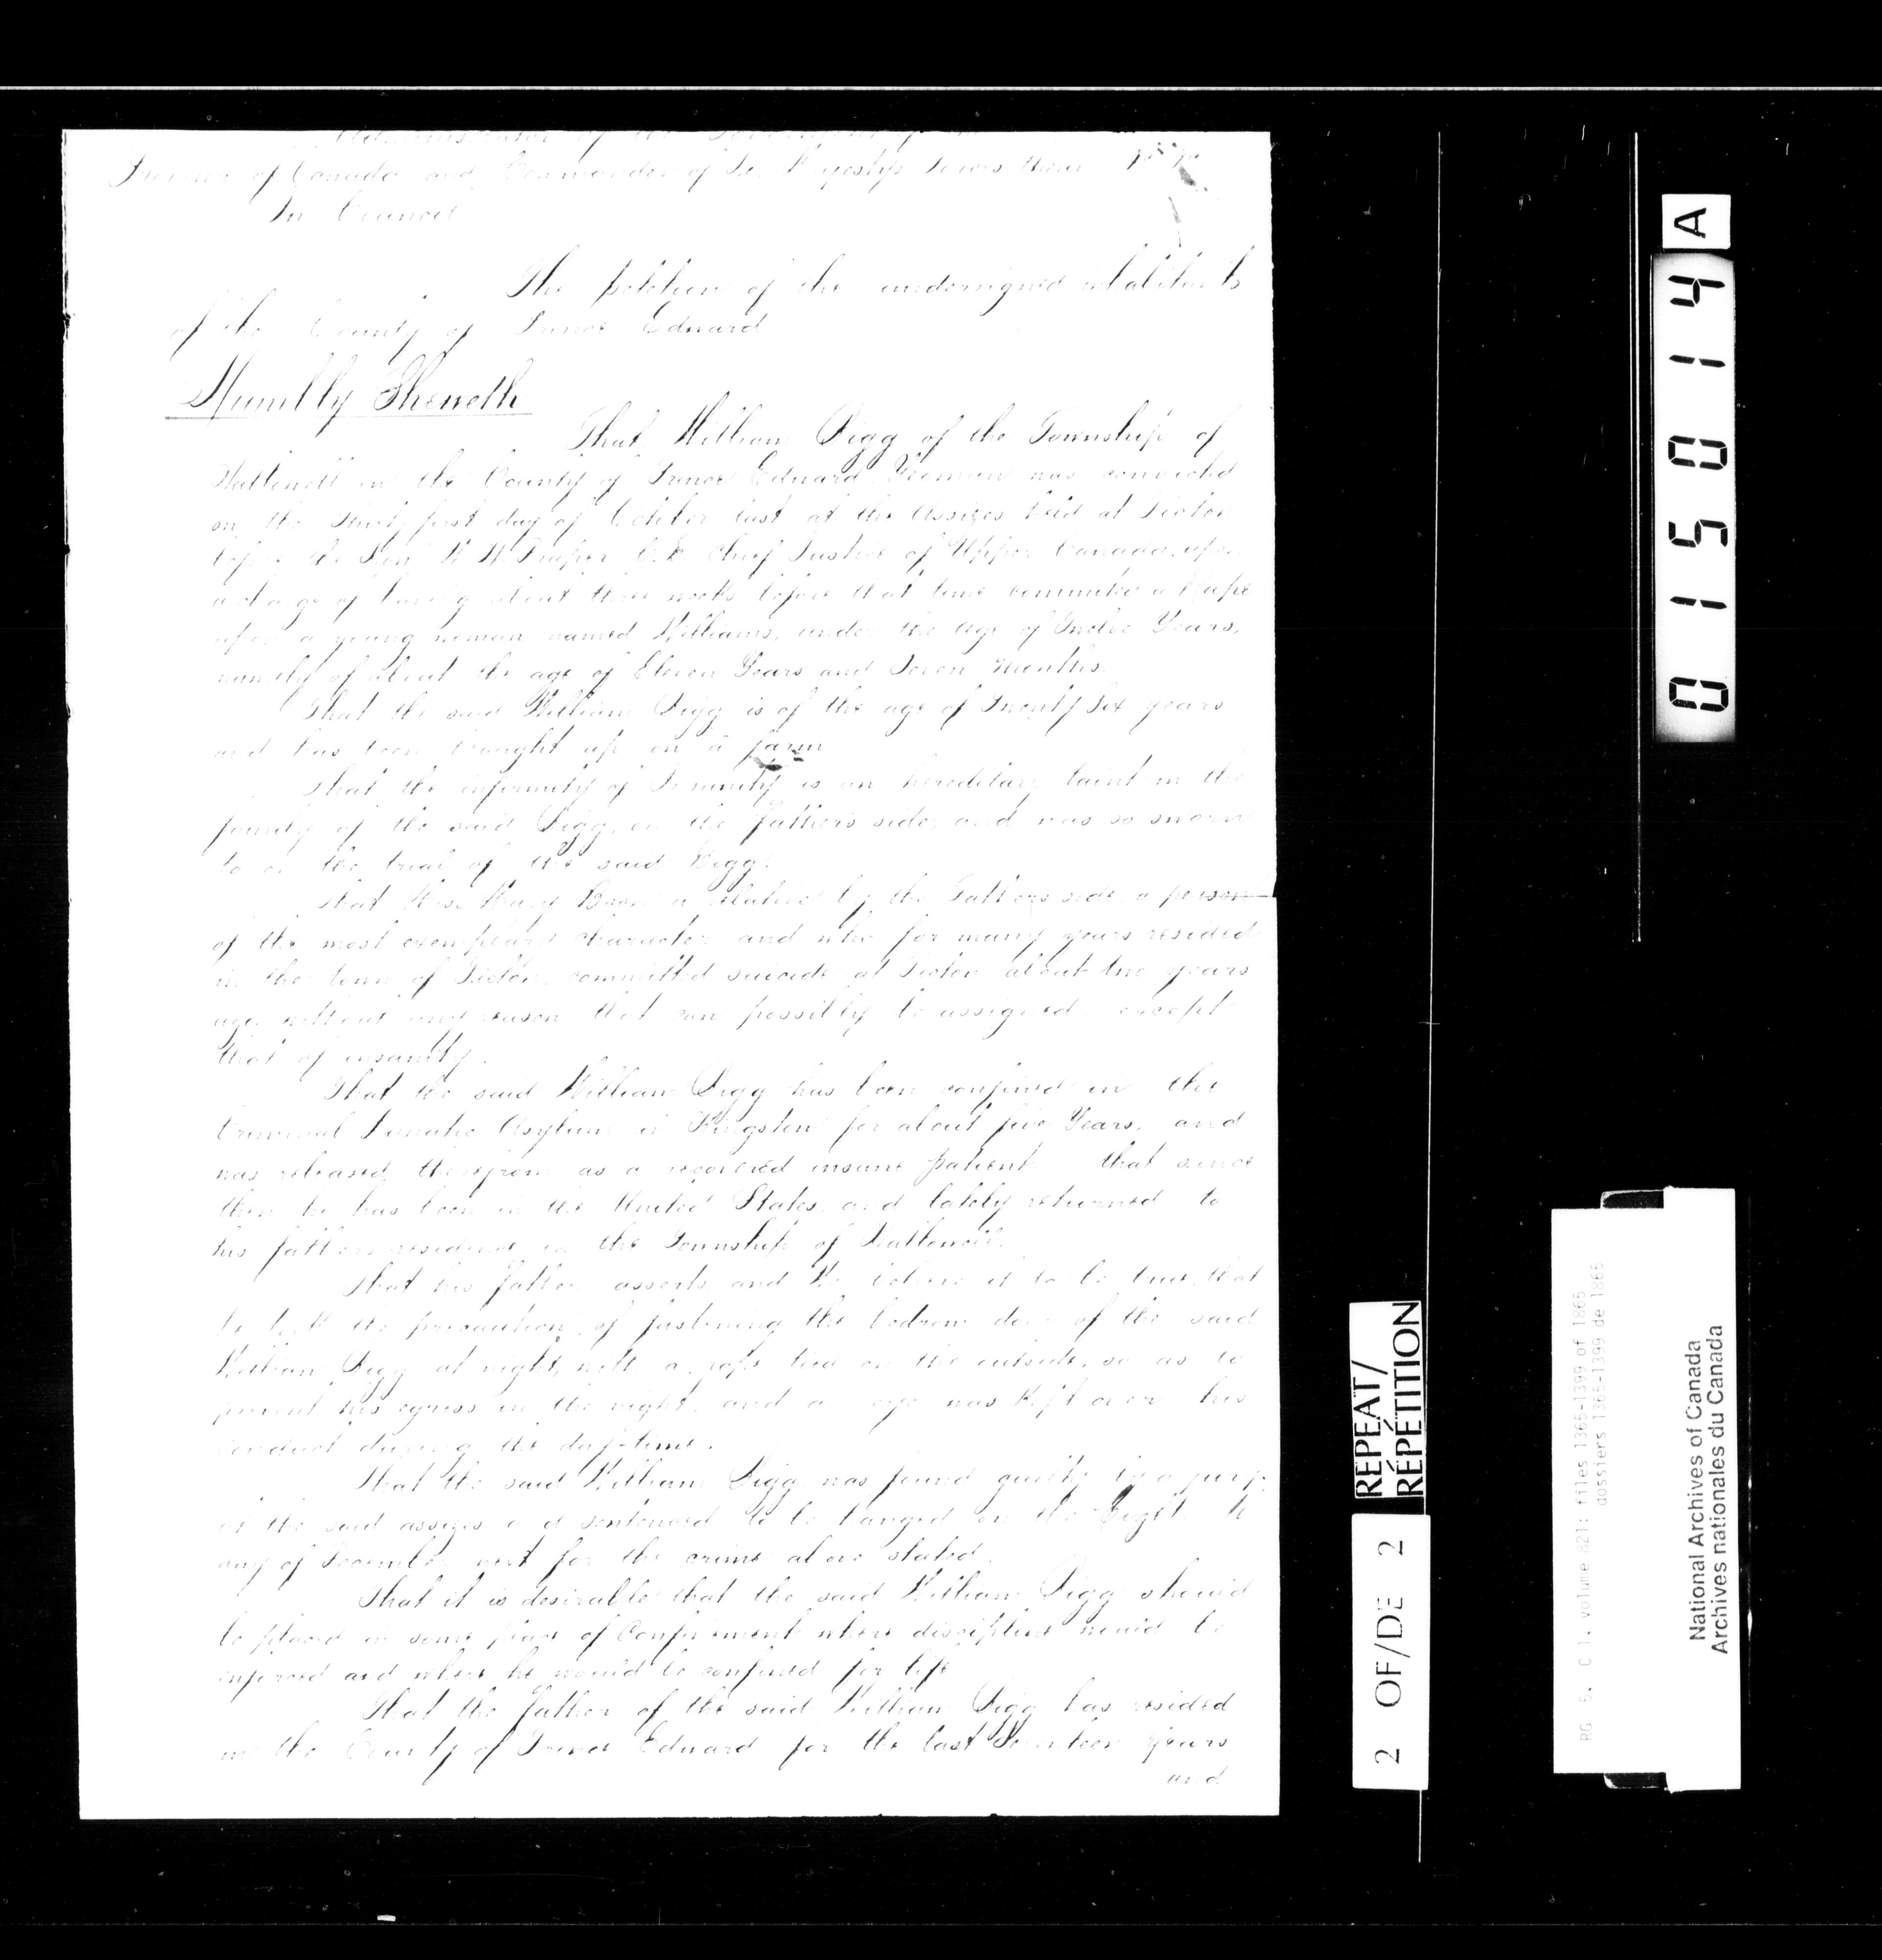 Administrator of the Government of
Province of Canada and Commander of Her Majestys Forces therein
In Council
The petition of the undersigned inhabitants
of the County of Prince Edward
Humbly Sheweth
That William Pigg of the Township of
Hallowell in the County of Prince Edward Yeoman was convicted
on the thirty first day of October last at the Assizes held at Picton
before the Hon W H Draper C.B. Chief Justice of Upper Canada, upon
a charge of having about three weeks before that time committed a Rape
upon a young woman named Williams, under the age of Twelve Years,
namely of about the age of Eleven Years and Seven Months.
That the said William Pigg is of the age of Twenty Six years
and has been brought up on a farm
That the infirmity of Insanity is an hereditary taint in the
family of the said Pigg, on the father's side, and was so sworn
to on the trial of the said Pigg.
That Miss Mary a relative by the Fathers side, a person
of the most exemplary character and who for many years resided
in the town of Picton, committed suicide at Picton about two years
ago, without any reason that can possibly be assigned, except
that of insanity.
That the said William Pigg has been confined in the
Criminal Lunatic Asylum in Kingston for about five Years, and
was released therefrom as a recovered insane patient that since
then he has been in the United States and lately returned to
his fathers residence in the Township of Hallowell.
That his father asserts and We believe it to be true, that
he took the precaution of fastening the bedroom door of the said
William Pigg at night, with a rope tied on the outside, so as to
prevent his egress in the night, and an eye was kept over his
conduct during the day-time.
That the said William Pigg was found guilty by a jury
at the said assizes and sentenced to be hanged on the Eighth
day of December next for the crime above stated.
That it is desirable that the said William Pigg should
be placed in some place of Confinement where discipline would be
enforced and where he would be confined for life
That the father of the said William Pigg has resided
in the County of Prince Edward for the last Seventeen Years
and
A
015014
REPEAT/
RÉPÉTITION
2 OF/DE 2
RG 5, C 1, volume 821: files 1365-1399 of 1865
dossiers 1365-1399 de 1865
National Archives of Canada
Archives nationales du Canada